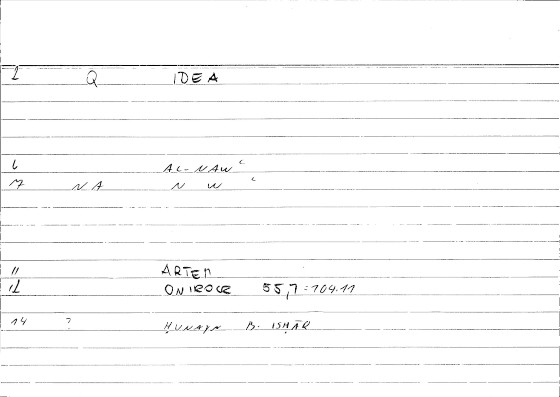 2 Q IDEA
6 AL-NAWʿ
7 NA N W ʿ
11 ARTEM
12 ONIROCR 55,7=104.11
14 ? ḤUNAYN B. ISḤĀQ